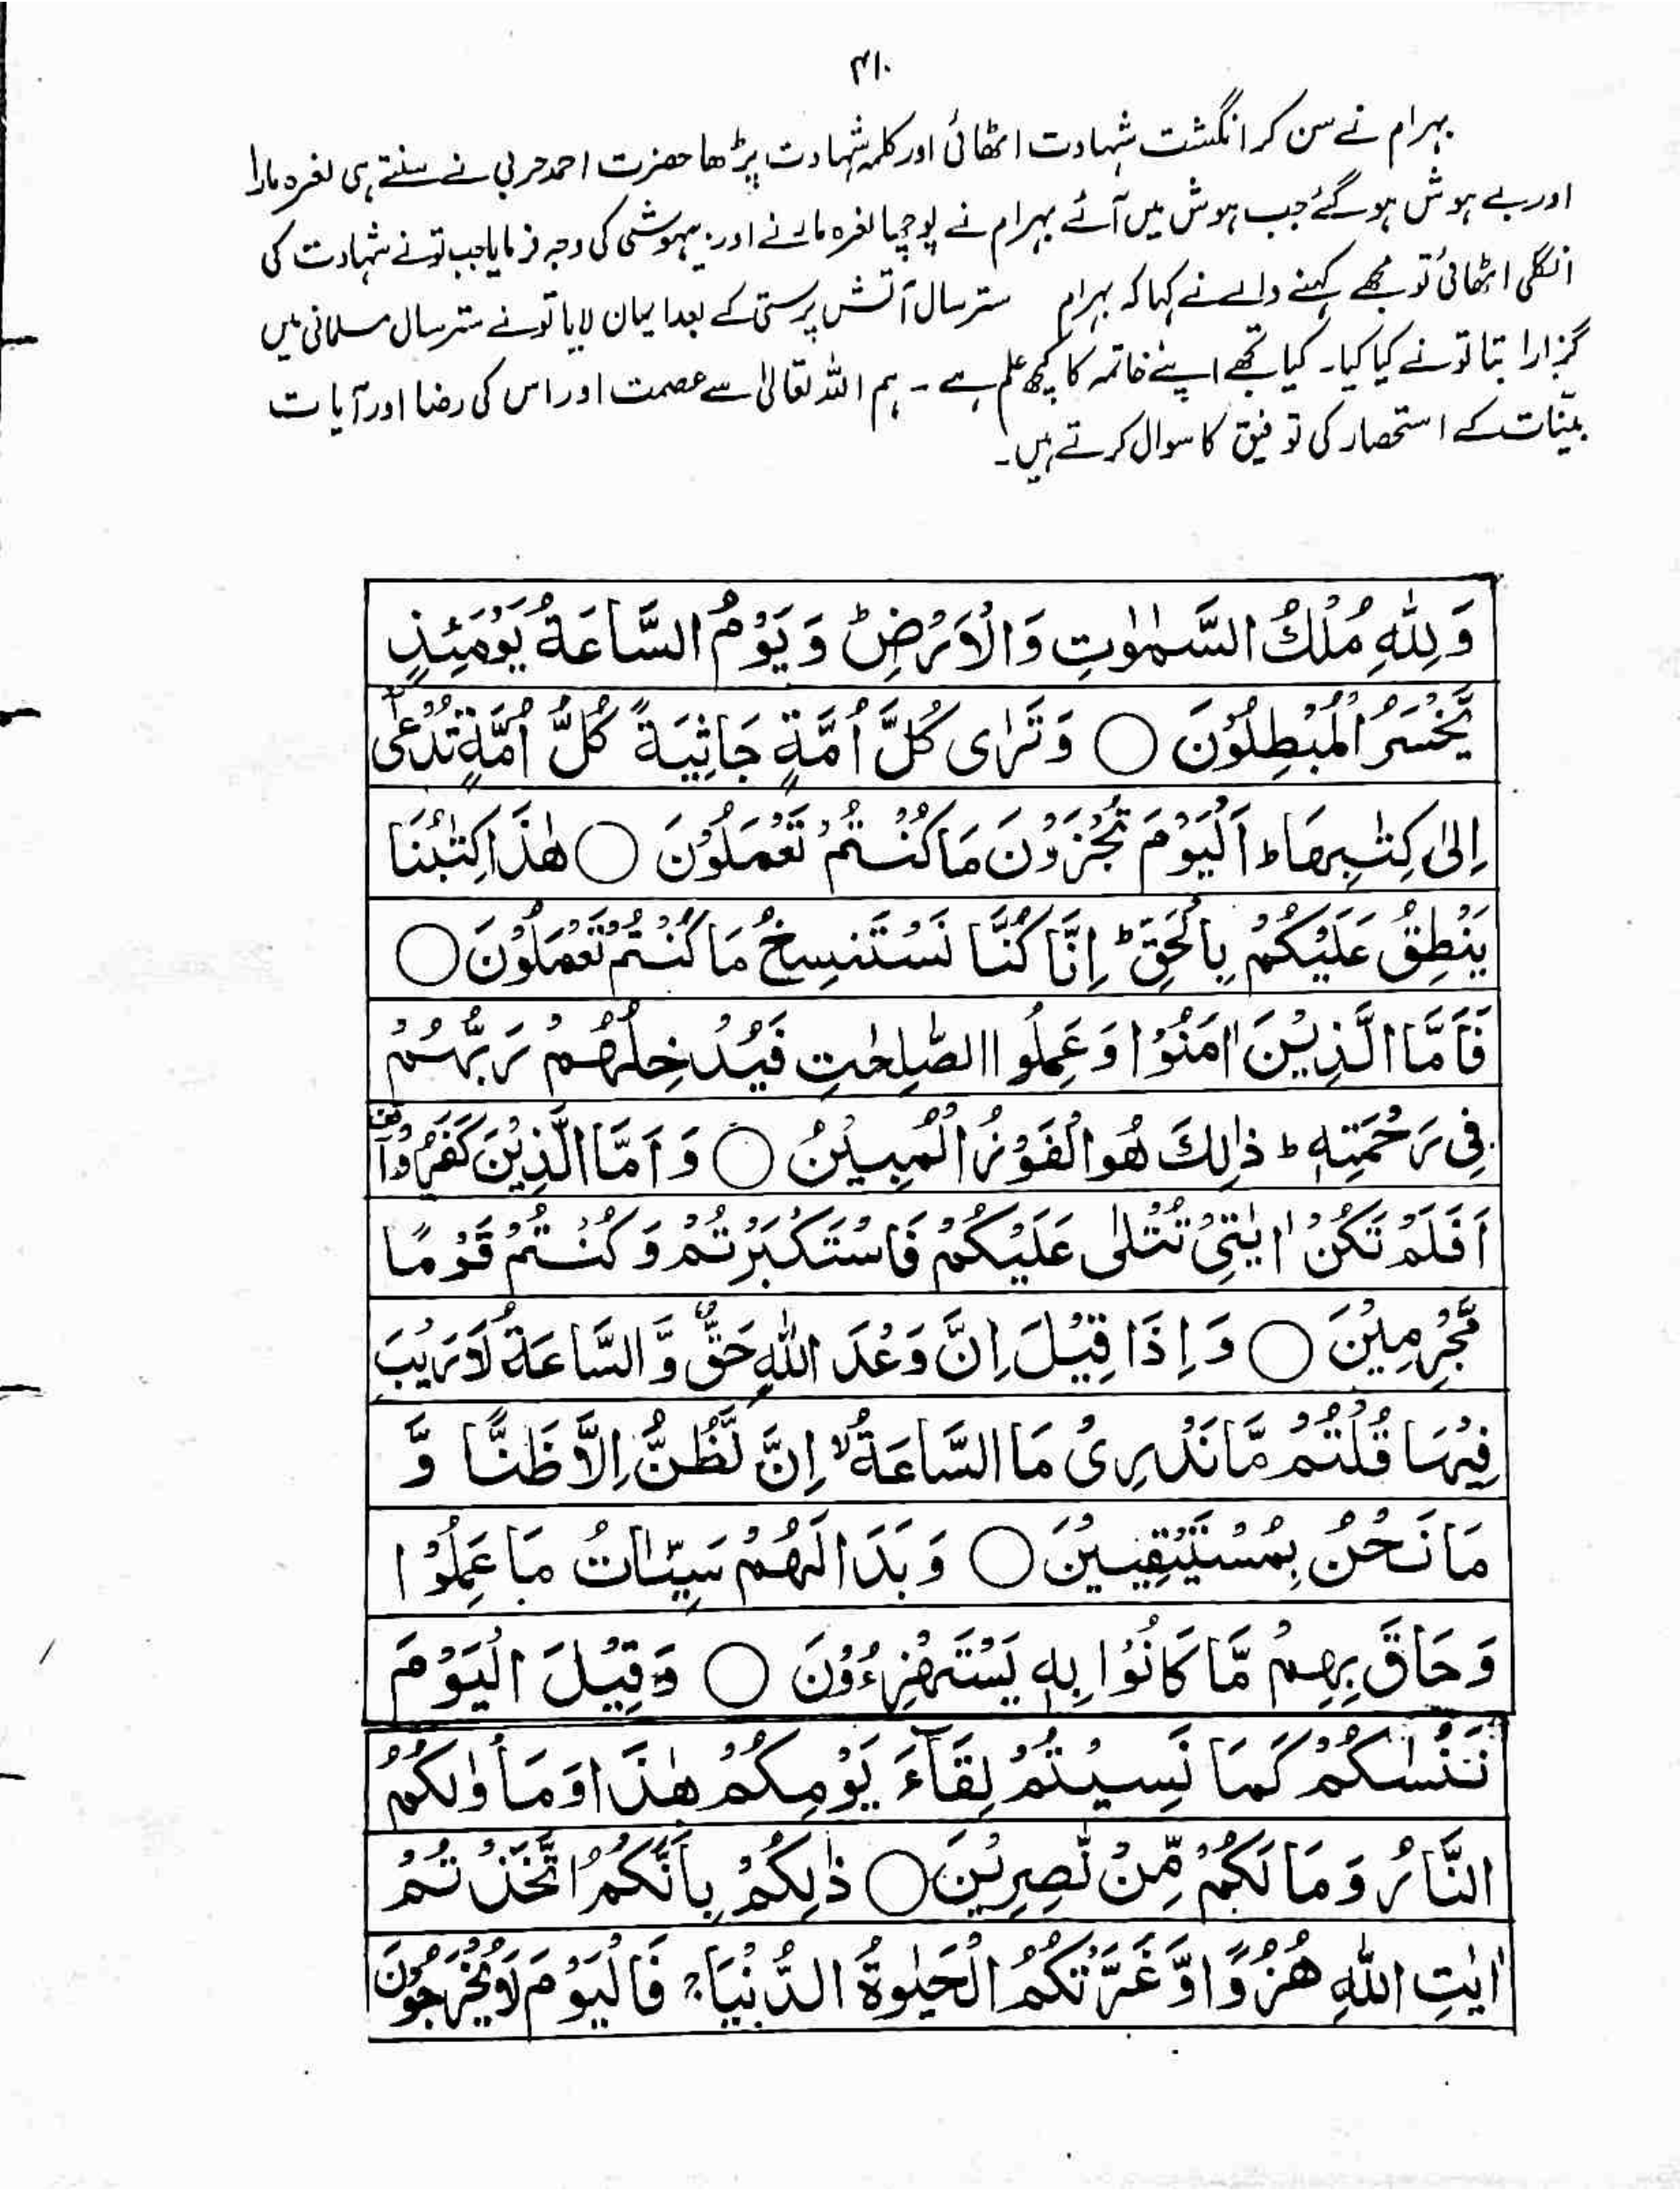 ۴۱۰
بہرام نے سن کر انگشت شہادت اٹھائی اور کلمہ شہادت پڑھا حضرت احمد حربی نے سنتے ہی نعرہ مارا
اور بے ہوش ہو گئے جب ہوش میں آئے بہرام نے پوچھا نعرہ مارنے اور بیہوشی کی وجہ فرمایا جب تو نے شہادت کی
انگلی اٹھائی تو مجھے کہنے والے نے کہا کہ بہرام ستر سال آتش پرستی کے بعد ایمان لایا تو نے ستر سال مسلمانی میں
گزارا بتا تو نے کیا کیا۔ کیا تجھے اپنے خاتمہ کا کچھ علم ہے ۔ ہم اللہ تعالیٰ سے عصمت اور اس کی رضا اور آیات
بیّنات کے استحصار کی توفیق کا سوال کرتے ہیں۔
وَلِلّٰهِ مُلْكُ السَّمٰوٰتِ وَالْاَرْضِ ؕ وَ يَوْمُ السَّاعَةُ يَوْمَئِذٍ
يَّخْسَرُ الْمُبْطِلُوْنَ ○ وَ تَرٰى كُلَّ اُمَّةٍ جَاثِيَةً كُلُّ اُمَّةٍ تُدْعٰۤى
اِلٰى كِتٰبِهَا ؕ اَلْيَوْمَ تُجْزَوْنَ مَا كُنْتُمْ تَعْمَلُوْنَ ○ هٰذَا كِتٰبُنَا
يَنْطِقُ عَلَيْكُمْ بِالْحَقِّ ؕ اِنَّا كُنَّا نَسْتَنسِخُ مَا كُنْتُمْ تَعْمَلُوْنَ ○
فَاَمَّا الَّذِيْنَ اٰمَنُوْا وَ عَمِلُوا الصّٰلِحٰتِ فَيُدْخِلُهُمْ رَبُّهُمْ
فِى رَحْمَتِهٖ ؕ ذٰلِكَ هُوَ الْفَوْزُ الْمُبِيْنُ ○ وَ اَمَّا الَّذِيْنَ كَفَرُوْٓا
اَفَلَمْ تَكُنْ اٰيٰتِىْ تُتْلٰى عَلَيْكُمْ فَاسْتَكْبَرْتُمْ وَ كُنْتُمْ قَوْمًا
مُّجْرِمِيْنَ ○ وَ اِذَا قِيْلَ اِنَّ وَعْدَ اللّٰهِ حَقٌّ وَّ السَّاعَةُ لَا رَيْبَ
فِيْهَا قُلْتُمْ مَّا نَدْرِىْ مَا السَّاعَةُ ۙ اِنَّ نَّظُنُّ اِلَّا ظَنًّا وَّ
مَا نَحْنُ بِمُسْتَيْقِنِيْنَ ○ وَ بَدَا لَهُمْ سَيِّاٰتُ مَا عَمِلُوْا
وَ حَاقَ بِهِمْ مَّا كَانُوْا بِهٖ يَسْتَهْزِءُوْنَ ○ وَ قِيْلَ الْيَوْمَ
نَنْسٰىكُمْ كَمَا نَسِيْتُمْ لِقَآءَ يَوْمِكُمْ هٰذَا وَ مَاْوٰىكُمُ
النَّارُ وَ مَا لَكُمْ مِّنْ نّٰصِرِيْنَ ○ ذٰلِكُمْ بِاَنَّكُمُ اتَّخَذْتُمْ
اٰيٰتِ اللّٰهِ هُزُوًا وَّ غَرَّتْكُمُ الْحَيٰوةُ الدُّنْيَا ۚ فَالْيَوْمَ لَا يُخْرَجُوْنَ